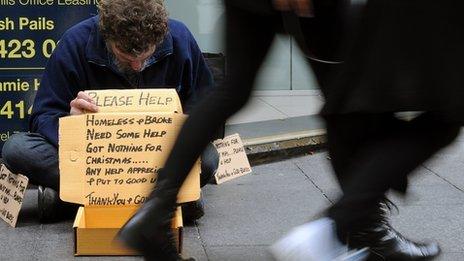 ills Office Leasing
sh Pails
423 00
414
PLEASE HELP
HOMELESS + BROKE
NEED SOME HELP
GOT NOTHING FOR
CHRISTMAS.....
ANY HELP APPREC
+ PUT TO GOOD U
THANK YOU + GOD
NOTHING
PLEASE
HELP